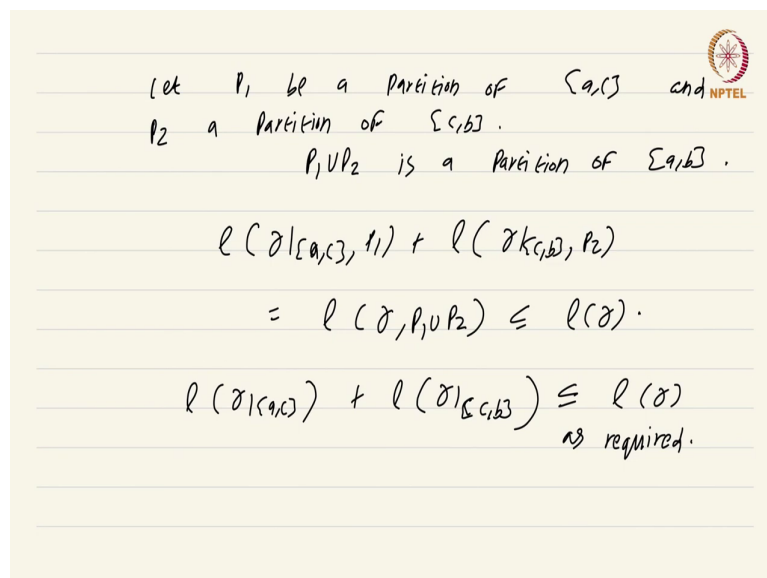 Let P₁ be a Partition of [a,c] and
NPTEL
P₂ a Partition of [c,b].
P₁∪P₂ is a Partition of [a,b].
ℓ(γ|[a,c], P₁) + ℓ(γ|[c,b], P₂)
= ℓ(γ, P₁∪P₂) ≤ ℓ(γ).
ℓ(γ|[a,c]) + ℓ(γ|[c,b]) ≤ ℓ(γ)
as required.